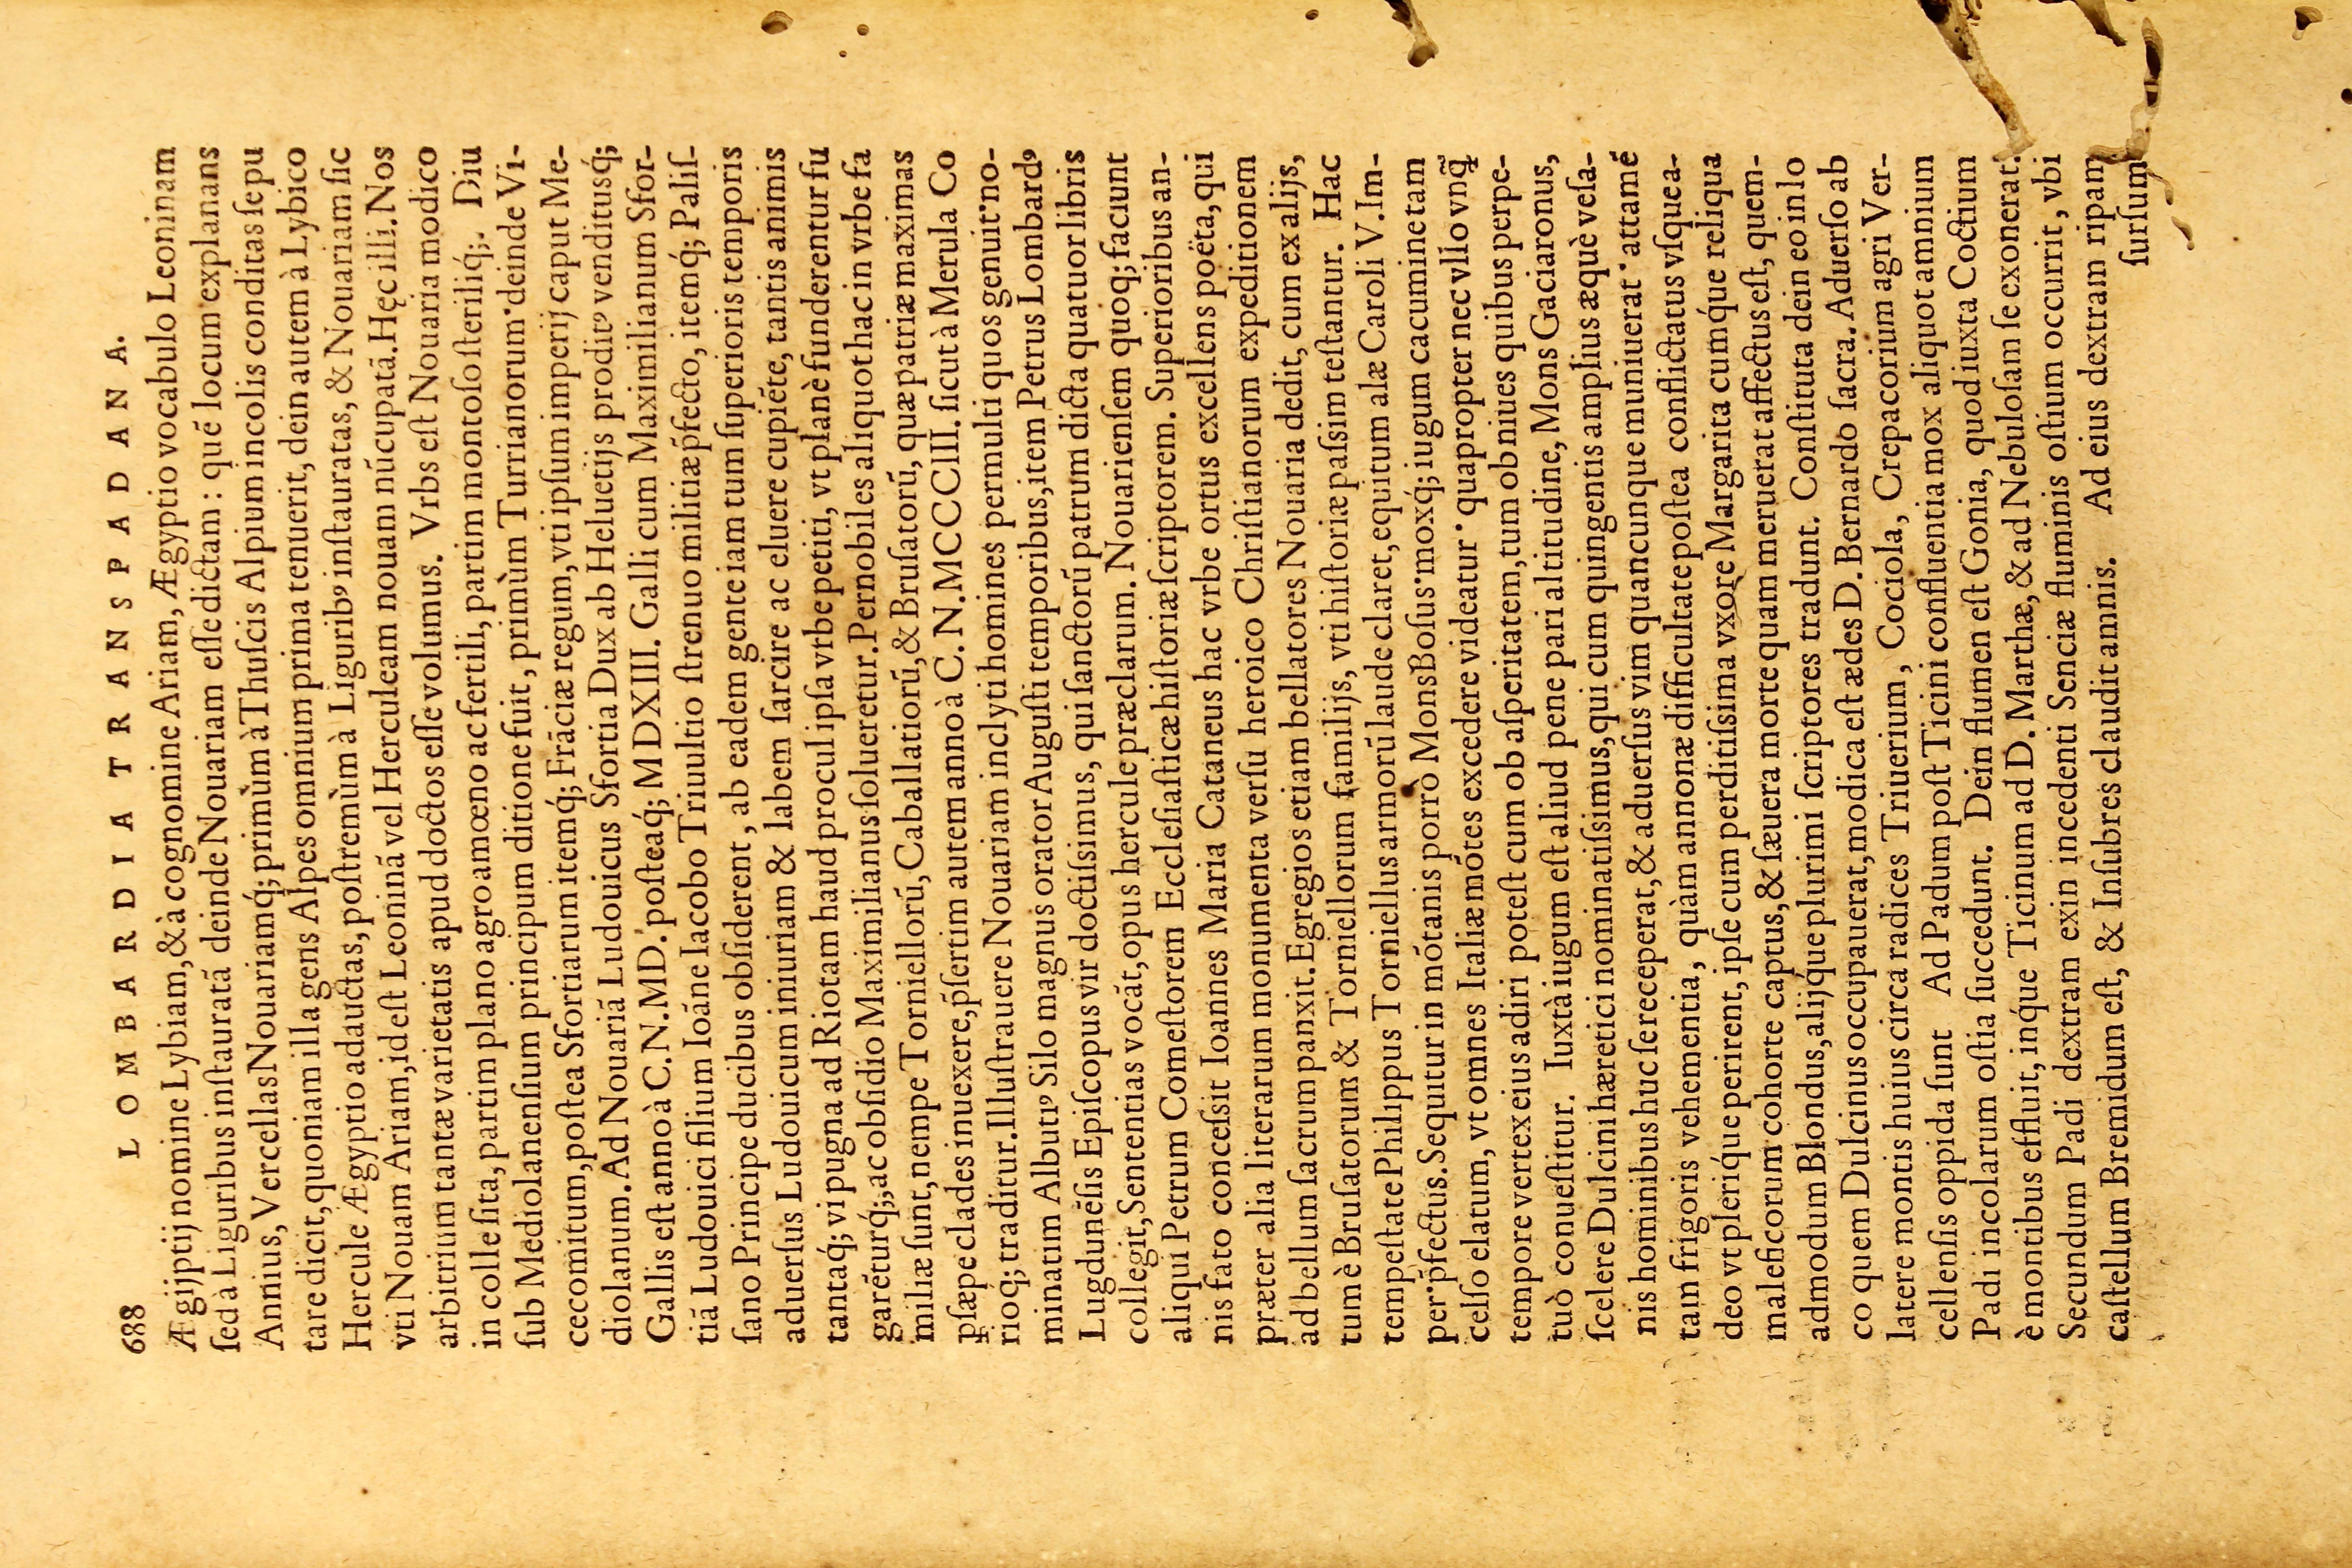 688 LOMBARDIA TRANSPADANA.
Ægijptij nomine Lybiam, & à cognomine Ariam, Ægyptio vocabulo Leoninam
ſed à Liguribus inſtauratã deinde Nouariam eſſe dictam : quẽ locum explanans
Annius, Vercellas Nouariamq́; primùm à Thuſcis Alpium incolis conditas ſe pu
tare dicit, quoniam illa gens Alpes omnium prima tenuerit, dein autem à Lybico
Hercule Ægyptio adauctas, poſtremùm à Ligurib⁹ inſtauratas, & Nouariam ſic
vti Nouam Ariam, id eſt Leoninã vel Herculeam nouam nũcupatã. Hęc illi. Nos
arbitrium tantæ varietatis apud doctos eſſe volumus. Vrbs eſt Nouaria modico
in colle ſita, partim plano agro amœno ac fertili, partim montoſo ſteriliq́;. Diu
ſub Mediolanenſium principum ditione fuit, primùm Turrianorum· deinde Vi-
cecomitum, poſtea Sfortiarum itemq́; Frãciæ regum, vti ipſum imperij caput Me-
diolanum. Ad Nouariã Ludouicus Sfortia Dux ab Heluetijs prodit⁹ venditusq́;
Gallis eſt anno à C.N.MD. poſteaq́; MDXIII. Galli cum Maximilianum Sfor-
tiã Ludouici filium Ioãne Iacobo Triuultio ſtrenuo militiæ p̃fecto, itemq́; Paliſ-
ſano Principe ducibus obſiderent, ab eadem gente iam tum ſuperioris temporis
aduerſus Ludouicum iniuriam & labem ſarcire ac eluere cupiẽte, tantis animis
tantaq́; vi pugna ad Riotam haud procul ipſa vrbe petiti, vt planè funderentur fu
garẽturq́;, ac obſidio Maximilianus ſolueretur. Pernobiles aliquot hac in vrbe fa
miliæ ſunt, nempe Torniellorũ, Caballatiorũ, & Bruſatorũ, quæ patriæ maximas
pſæpe clades inuexere, p̃ſertim autem anno à C.N.MCCCIII. ſicut à Merula Co
rioq́; traditur. Illuſtrauere Nouariam inclyti homines permulti quos genuit· no-
minatim Albuti⁹ Silo magnus orator Auguſti temporibus, item Petrus Lombard⁹
Lugdunẽſis Epiſcopus vir doctiſsimus, qui ſanctorũ patrum dicta quatuor libris
collegit, Sententias vocãt, opus hercule præclarum. Nouarienſem quoq; faciunt
aliqui Petrum Comeſtorem Eccleſiaſticæ hiſtoriæ ſcriptorem. Superioribus an-
nis fato conceſsit Ioannes Maria Cataneus hac vrbe ortus excellens poëta, qui
præter alia literarum monumenta verſu heroico Chriſtianorum expeditionem
ad bellum ſacrum panxit. Egregios etiam bellatores Nouaria dedit, cum ex alijs,
tum è Bruſatorum & Torniellorum familijs, vti hiſtoriæ paſsim teſtantur. Hac
tempeſtate Philippus Torniellus armorũ laude claret, equitum alæ Caroli V. Im-
per· p̃fectus. Sequitur in mõtanis porrò Mons Boſus· moxq́; iugum cacumine tam
celſo elatum, vt omnes Italiæ mõtes excedere videatur · quapropter nec vllo vnq̃
tempore vertex eius adiri poteſt cum ob aſperitatem, tum ob niues quibus perpe-
tuò conueſtitur. Iuxtà iugum eſt aliud pene pari altitudine, Mons Gaciaronus,
ſcelere Dulcini hæretici nominatiſsimus, qui cum quingentis amplius æquè veſa-
nis hominibus huc ſe receperat, & aduerſus vim quancunque muniuerat · attamẽ
tam frigoris vehementia, quàm annonæ difficultate poſtea conflictatus vſque a-
deo vt pleriq́ue perirent, ipſe cum perditiſsima vxore Margarita cumq́ue reliqua
maleficorum cohorte captus, & ſæuera morte quam meruerat affectus eſt, quem-
admodum Blondus, alijq́ue plurimi ſcriptores tradunt. Conſtituta dein eo in lo
co quem Dulcinus occupauerat, modica eſt ædes D. Bernardo ſacra. Aduerſo ab
latere montis huius circa radices Triuerium, Cociola, Crepacorium agri Ver-
cellenſis oppida ſunt Ad Padum poſt Ticini confluentia mox aliquot amnium
Padi incolarum oſtia ſuccedunt. Dein flumen eſt Gonia, quod iuxta Coctium
è montibus effluit, inq́ue Ticinum ad D. Marthæ, & ad Nebuloſam ſe exonerat.
Secundum Padi dextram exin incedenti Senciæ fluminis oſtium occurit, vbi
caſtellum Bremidum eſt, & Inſubres claudit amnis. Ad eius dextram ripam
ſurſum